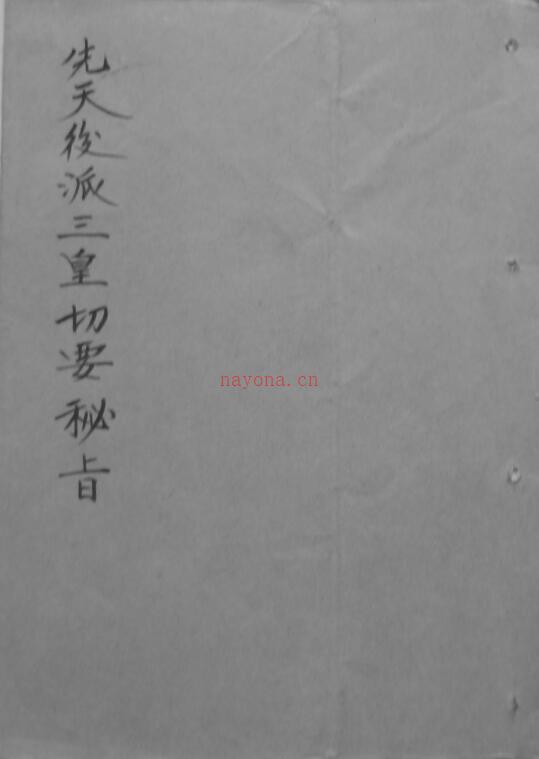 先天後派三皇切要秘旨
nayona.cn